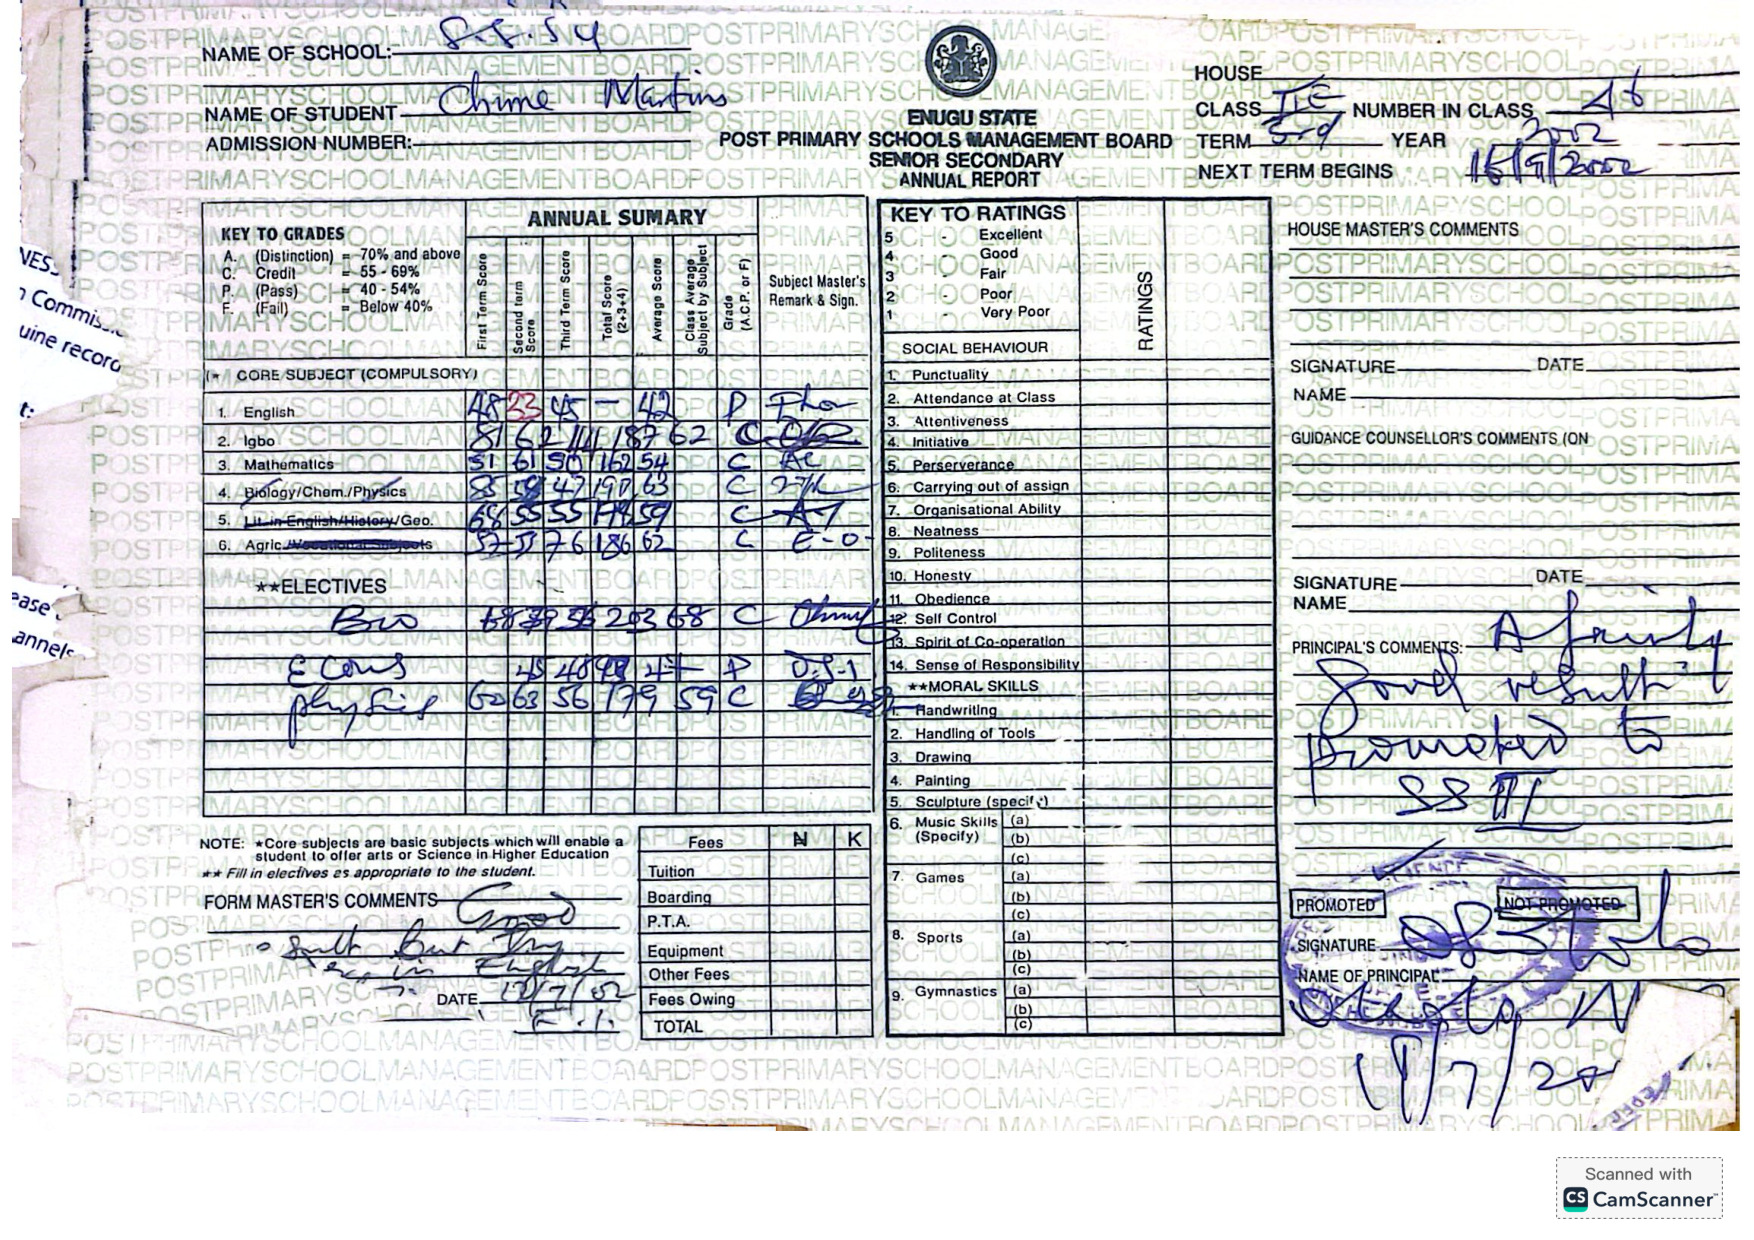 NAME OF SCHOOL: S.S.S4
NAME OF STUDENT Chime Martins
ADMISSION NUMBER:
ENUGU STATE
POST PRIMARY SCHOOLS MANAGEMENT BOARD
SENIOR SECONDARY
ANNUAL REPORT
HOUSE
CLASS IIE NUMBER IN CLASS 46
TERM 3rd YEAR 2002
NEXT TERM BEGINS 16/9/2002
KEY TO GRADES
A. (Distinction) = 70% and above
C. Credit = 55 - 69%
P. (Pass) = 40 - 54%
F. (Fail) = Below 40%
ANNUAL SUMARY
First Term Score
Second term Score
Third Term Score
Total Score (2+3+4)
Average Score
Class Average Subject by Subject
Grade (A.C.P. or F)
Subject Master's Remark & Sign.
(* CORE SUBJECT (COMPULSORY)
1. English 48 23 45 - 42 P
2. Igbo 81 62 44 187 62 C
3. Mathematics 51 61 50 162 54 C
4. Biology/Chem./Physics 47 63 C
5. Lit. in English/History/Geo. 68 55 55 178 59 C
6. Agric./Vocational Subjects 76 186 62 C E-O
**ELECTIVES
Bio 68 79 56 203 68 C
Econs 45 48 P
Physics 60 63 56 179 59 C
NOTE: *Core subjects are basic subjects which will enable a
student to offer arts or Science in Higher Education
** Fill in electives as appropriate to the student.
FORM MASTER'S COMMENTS Good
result But Try
in English
DATE /7/02
Fees N K
Tuition
Boarding
P.T.A.
Equipment
Other Fees
Fees Owing
TOTAL
KEY TO RATINGS
5 - Excellent
4 - Good
3 - Fair
2 - Poor
1 - Very Poor
RATINGS
SOCIAL BEHAVIOUR
1. Punctuality
2. Attendance at Class
3. Attentiveness
4. Initiative
5. Perserverance
6. Carrying out of assign
7. Organisational Ability
8. Neatness
9. Politeness
10. Honesty
11. Obedience
12. Self Control
13. Spirit of Co-operation
14. Sense of Responsibility
**MORAL SKILLS
1. Handwriting
2. Handling of Tools
3. Drawing
4. Painting
5. Sculpture (specify)
6. Music Skills (Specify) (a)
(b)
(c)
7. Games (a)
(b)
(c)
8. Sports (a)
(b)
(c)
9. Gymnastics (a)
(b)
(c)
HOUSE MASTER'S COMMENTS
SIGNATURE DATE
NAME
GUIDANCE COUNSELLOR'S COMMENTS (ON
SIGNATURE DATE
NAME
PRINCIPAL'S COMMENTS: A fairly
Good result
promoted to
SS III
PROMOTED NOT PROMOTED
SIGNATURE
NAME OF PRINCIPAL
Scanned with
CS CamScanner